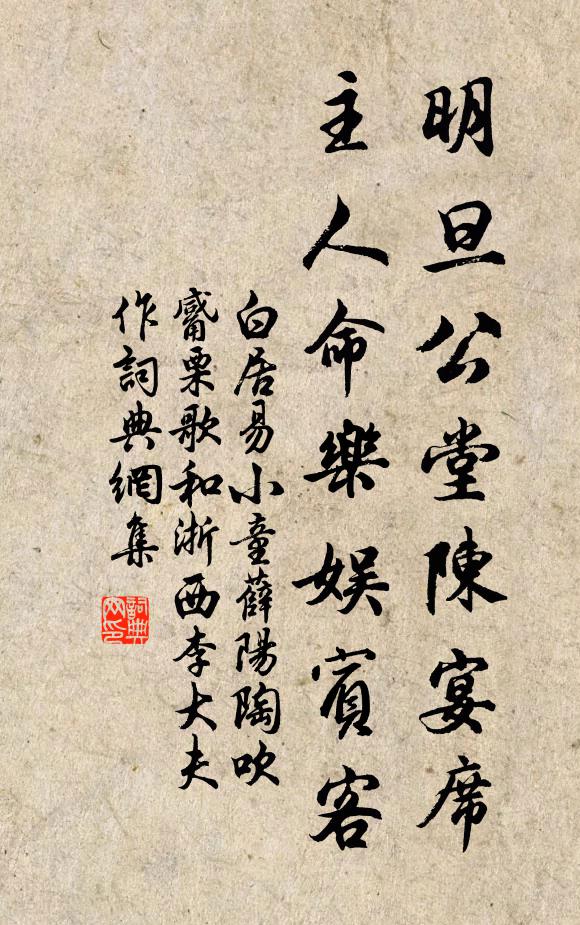 明旦公堂陳宴席
主人命樂娛賓客
白居易小童薛陽陶吹
觱栗歌和浙西李大夫
作詞典網集
詞典
网印